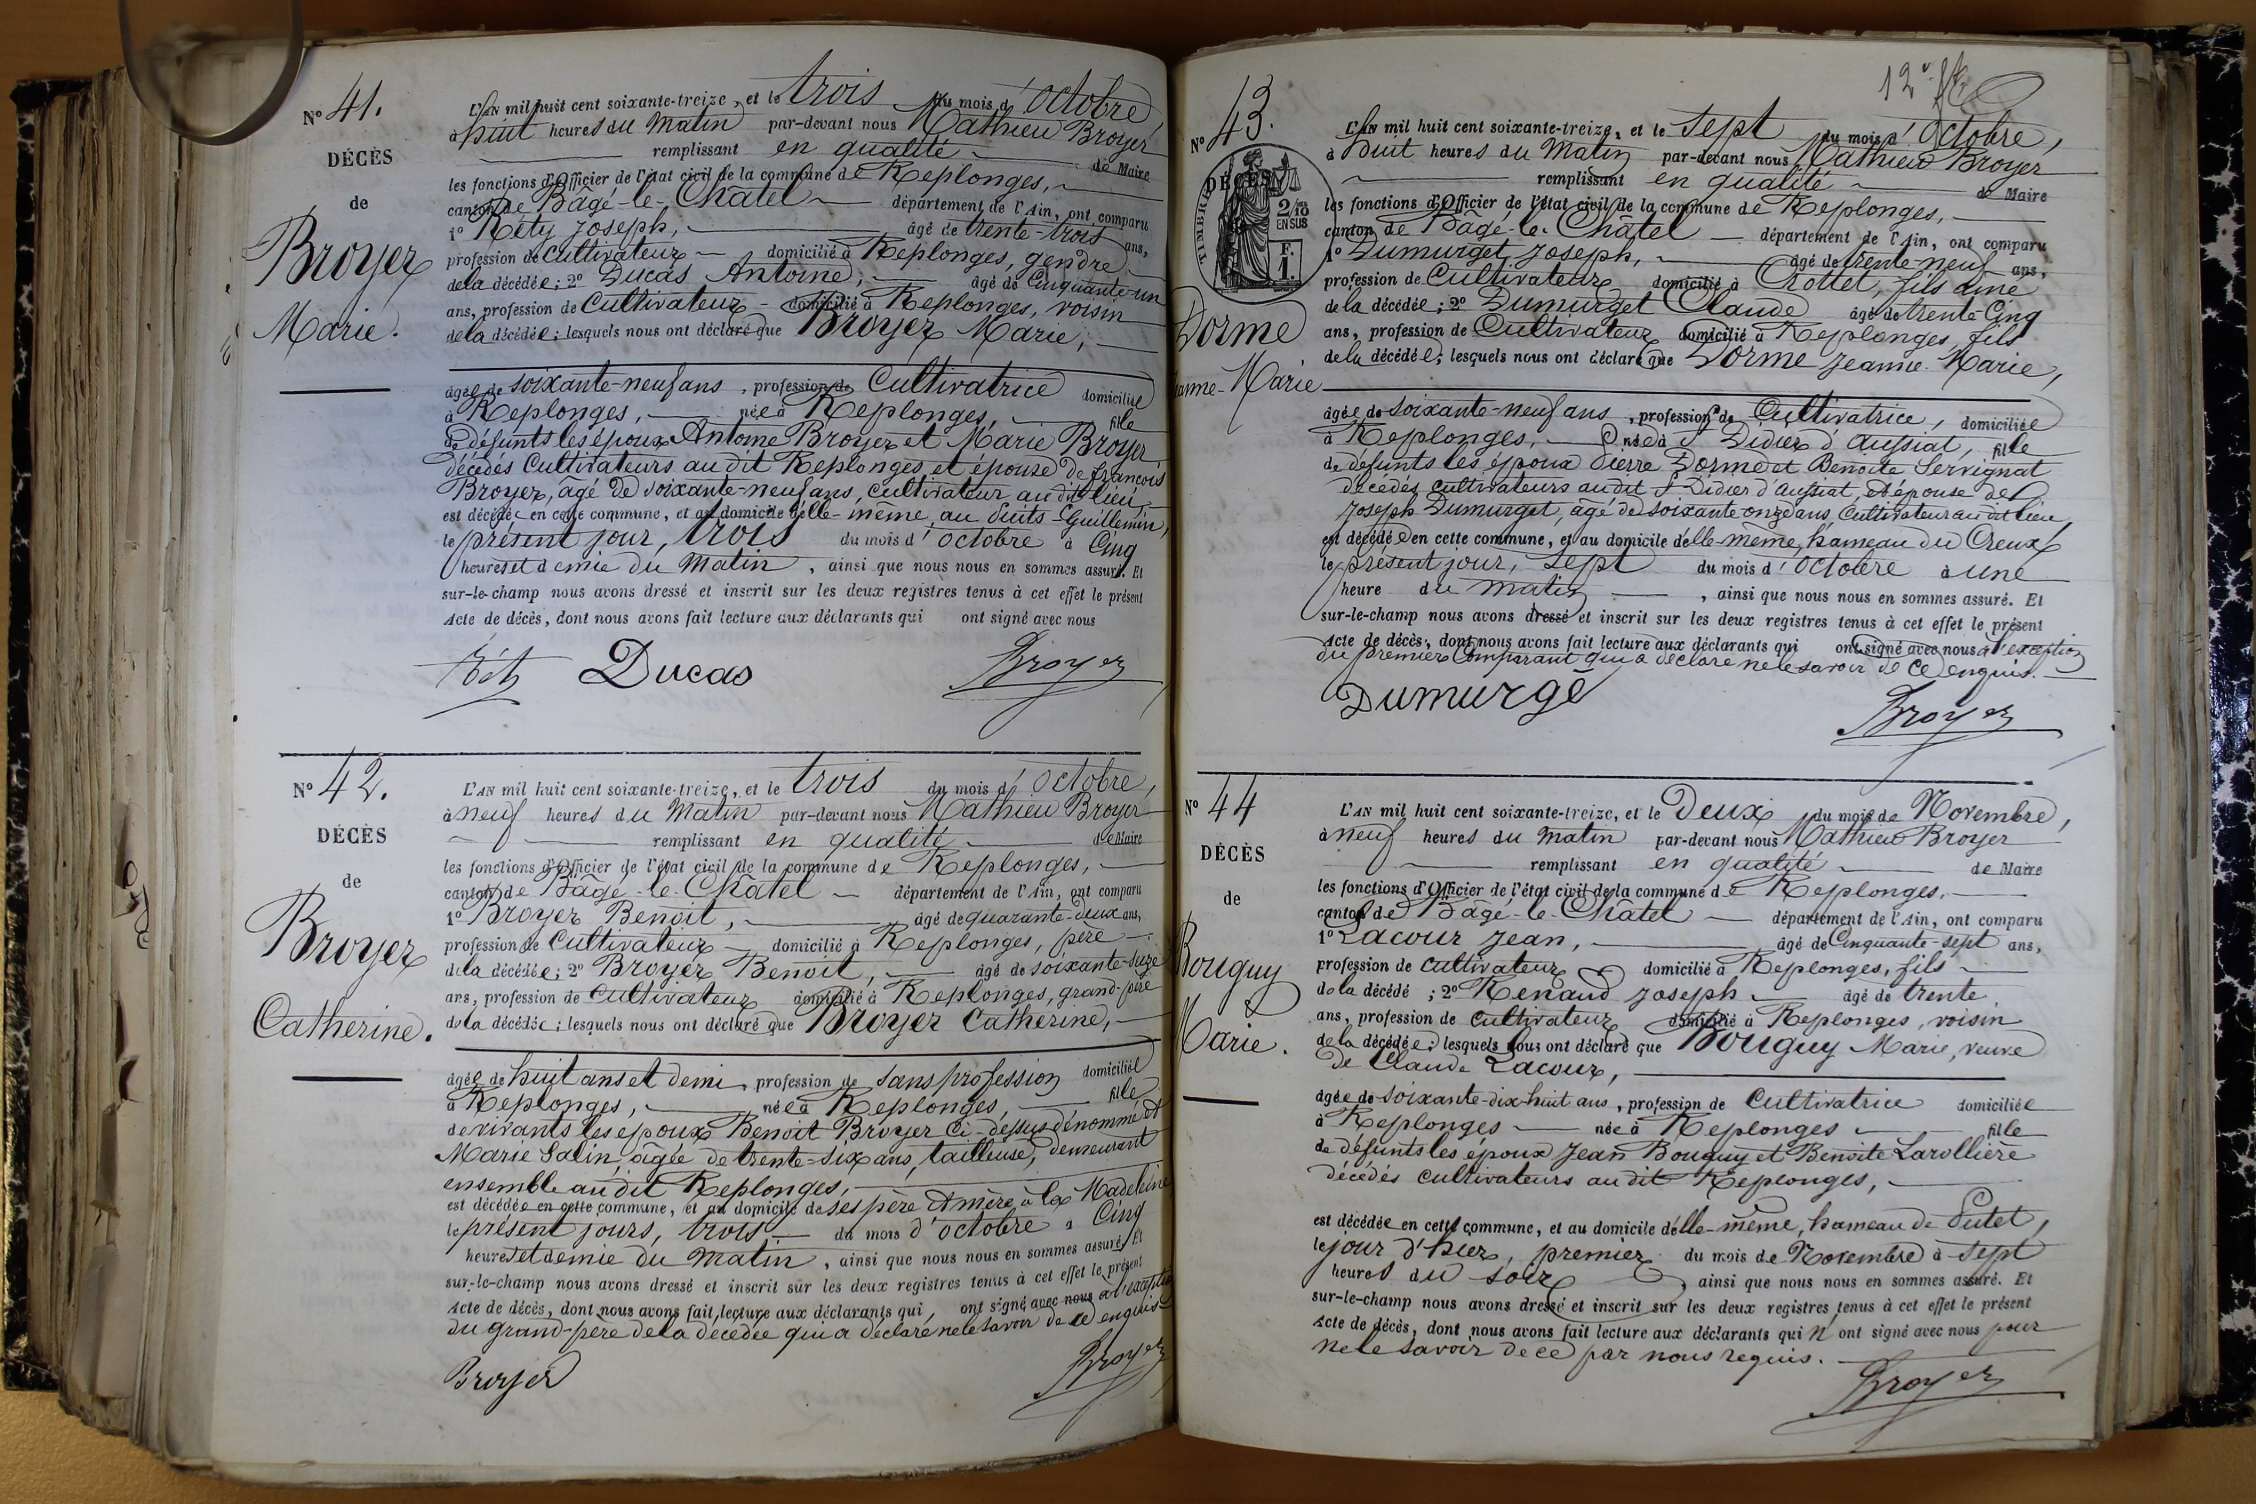 No 41.
DÉCÈS
de
Broyer
Marie.
L'AN mil huit cent soixante-treize, et le trois du mois d'Octobre
à huit heures du Matin par-devant nous Mathieu Broyer
remplissant en qualité de Maire
les fonctions d'Officier de l'état civil de la commune de Replonges,
canton de Bâgé-le-Châtel département de l'Ain, ont comparu
1º Réty Joseph, âgé de trente-trois ans,
profession de cultivateur domicilié à Replonges, gendre
de la décédée; 2º Ducas Antoine, âgé de Cinquante-un
ans, profession de Cultivateur domicilié à Replonges, voisin
de la décédée; lesquels nous ont déclaré que Broyer Marie,
âgée de soixante-neuf ans, profession de Cultivatrice domiciliée
à Replonges, née à Replonges, fille
de défunts les époux Antoine Broyer et Marie Broyer
décédés Cultivateurs au dit Replonges, et épouse de François
Broyer, âgé de soixante-neuf ans, cultivateur au dit lieu,
est décédée en cette commune, et au domicile d'elle-même, au Puits-Guillemin,
le présent jour, trois du mois d'octobre à Cinq
heures et demie du Matin, ainsi que nous nous en sommes assuré. Et
sur-le-champ nous avons dressé et inscrit sur les deux registres tenus à cet effet le présent
Acte de décès, dont nous avons fait lecture aux déclarants qui ont signé avec nous
Réty Ducas Broyer
No 42.
DÉCÈS
de
Broyer
Catherine.
L'AN mil huit cent soixante-treize, et le trois du mois d'Octobre,
à neuf heures du Matin par-devant nous Mathieu Broyer
remplissant en qualité de Maire
les fonctions d'Officier de l'état civil de la commune de Replonges,
canton de Bâgé-le-Châtel département de l'Ain, ont comparu
1º Broyer Benoit, âgé de quarante-deux ans,
profession de Cultivateur domicilié à Replonges, père
de la décédée; 2º Broyer Benoit, âgé de soixante-seize
ans, profession de Cultivateur domicilié à Replonges, grand-père
de la décédée; lesquels nous ont déclaré que Broyer Catherine,
âgée de huit ans et demi, profession de sans profession domiciliée
à Replonges, née à Replonges, fille
de vivants les époux Benoit Broyer ci-dessus dénommé et
Marie Salin, âgée de trente-six ans, tailleuse, demeurant
ensemble au dit Replonges,
est décédée en cette commune, et au domicile de ses père & mère à la Madeleine
le présent jours, trois du mois d'octobre à Cinq
heures et demie du Matin, ainsi que nous nous en sommes assuré. Et
sur-le-champ nous avons dressé et inscrit sur les deux registres tenus à cet effet le présent
Acte de décès, dont nous avons fait lecture aux déclarants qui ont signé avec nous à l'exception
du grand-père de la décédée qui a déclaré ne le savoir de ce enquis
Broyer Broyer
12e
No 43.
DÉCÈS
TIMBRE
2/10
EN SUS
F.
1.
Dorme
Jeanne-Marie
L'AN mil huit cent soixante-treize, et le Sept du mois d'Octobre,
à huit heures du Matin par-devant nous Mathieu Broyer
remplissant en qualité de Maire
les fonctions d'Officier de l'état civil de la commune de Replonges,
canton de Bâgé-le-Châtel département de l'Ain, ont comparu
1º Dumurget Joseph, âgé de trente neuf ans,
profession de Cultivateur domicilié à Crottet, fils ainé
de la décédée; 2º Dumurget Claude âgé de trente Cinq
ans, profession de Cultivateur domicilié à Replonges fils
de la décédée; lesquels nous ont déclaré que Dorme Jeanne-Marie,
âgée de soixante-neuf ans, profession de Cultivatrice, domiciliée
à Replonges, née à St Didier d'Aussiat, fille
de défunts les époux Pierre Dorme et Benoite Servignat
décédés cultivateurs au dit St Didier d'Aussiat, et épouse de
Joseph Dumurget, âgé de soixante-onze ans Cultivateur au dit lieu,
est décédée en cette commune, et au domicile d'elle-même, hameau du Creux
le présent jour, Sept du mois d'Octobre à une
heure du matin, ainsi que nous nous en sommes assuré. Et
sur-le-champ nous avons dressé et inscrit sur les deux registres tenus à cet effet le présent
Acte de décès, dont nous avons fait lecture aux déclarants qui ont signé avec nous à l'exception
du premier Comparant qui a déclaré ne le savoir de ce enquis.
Dumurgé Broyer
No 44
DÉCÈS
de
Bouguy
Marie.
L'AN mil huit cent soixante-treize, et le Deux du mois de Novembre,
à neuf heures du matin par-devant nous Mathieu Broyer
remplissant en qualité de Maire
les fonctions d'Officier de l'état civil de la commune de Replonges,
canton de Bâgé-le-Châtel département de l'Ain, ont comparu
1º Lacour Jean, âgé de Cinquante-sept ans,
profession de cultivateur domicilié à Replonges, fils
de la décédé; 2º Renaud Joseph âgé de trente
ans, profession de cultivateur domicilié à Replonges, voisin
de la décédée; lesquels nous ont déclaré que Bouguy Marie, veuve
de Claude Lacour,
âgée de soixante-dix-huit ans, profession de Cultivatrice domiciliée
à Replonges née à Replonges fille
de défunts les époux Jean Bouguy et Benoite Larollière
décédés cultivateurs au dit Replonges,
est décédée en cette commune, et au domicile d'elle-même, hameau de Putet,
le jour d'hier, premier du mois de Novembre à sept
heures du soir, ainsi que nous nous en sommes assuré. Et
sur-le-champ nous avons dressé et inscrit sur les deux registres tenus à cet effet le présent
Acte de décès, dont nous avons fait lecture aux déclarants qui n'ont signé avec nous pour
ne le savoir de ce par nous requis.
Broyer